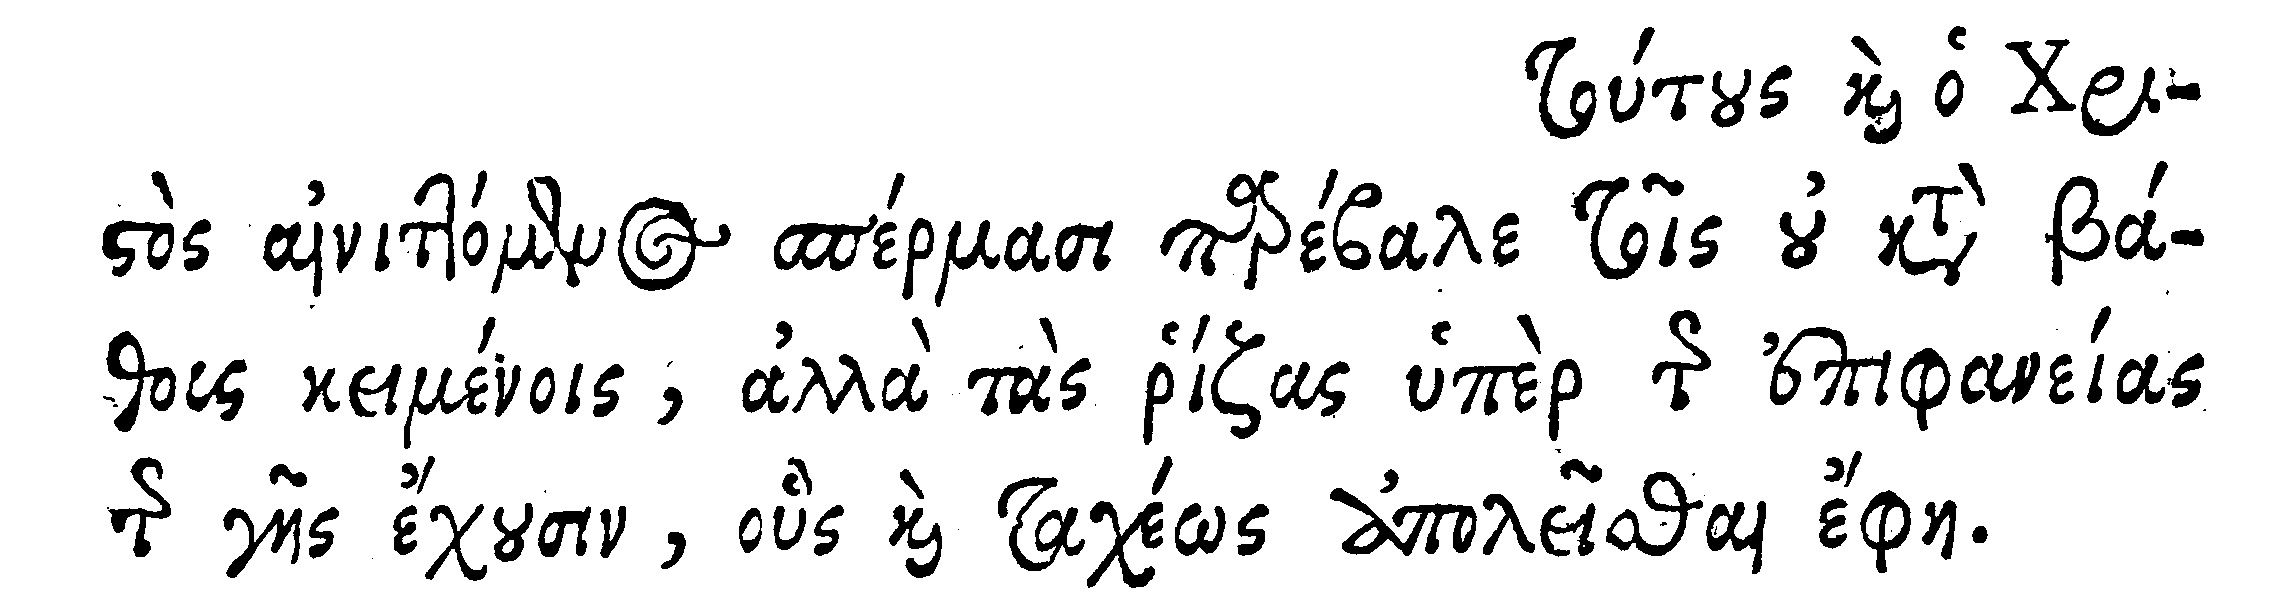 τούτους καὶ ὁ Χρι-
στὸς αἰνιττόμενος σπέρμασι παρέβαλε τοῖς οὐ κατὰ βά-
θους κειμένοις, ἀλλὰ τὰς ῥίζας ὑπὲρ τῆς ἐπιφανείας
τῆς γῆς ἔχουσιν, οὓς καὶ ταχέως ἀπολεῖσθαι ἔφη.